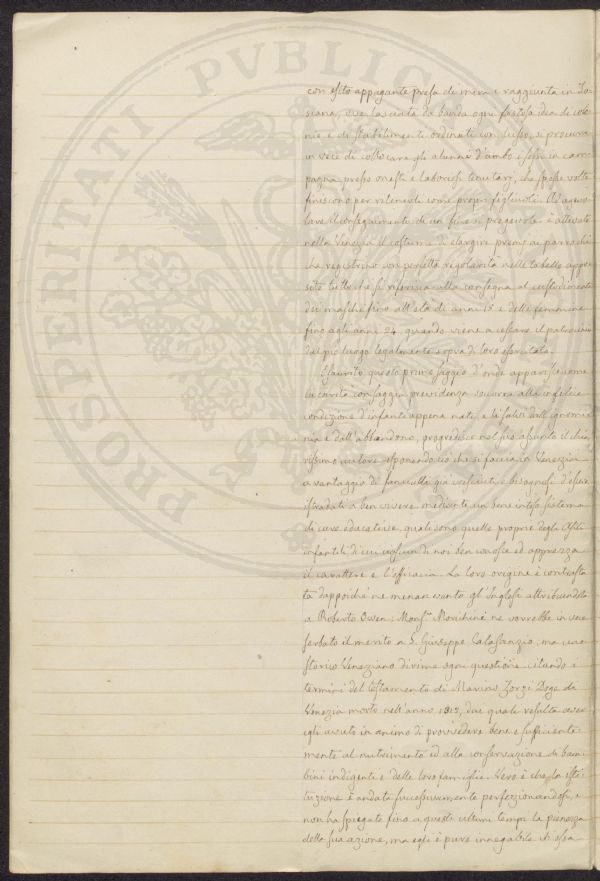 PROSPERITATI PVBLIC
con esito appagante presa di mira e raggiunta in To-
scana, ove lasciata da banda ogni fastosa idea di colo-
nie e di stabilimenti ordinati con lusso, si procura
in vece di collocare gli alunni d'ambo i sessi in cam-
pagna presso onesti e laboriosi tenutarj, che spesse volte
finiscono per ritenerli come proprj figliuoli. Ad agevo-
lare il conseguimento di un fine sì pregevole è attivato
nella Venezia il costume di elargire premj ai parrochi
che registrino con perfetta regolarità nelle tabelle appo-
site tutto ciò si riferisce alla consegna al
dei maschi fino all'età di anni 18 e delle femmine
fino agli anni 24 quando viene a cessare il patrocinio
del pio luogo legalmente sopra di loro esercitato.
Esaurito questo primo saggio d'onde apparisce come
la carità con saggia previdenza soccorra alla infelice
condizione d'infanti appena nati, e li salvi dall'ignomi-
nia e dall'abbandono, progredisce nel suo assunto il chia-
rissimo autore esponendo ciò che si faccia in Venezia
a vantaggio di fanciulli già cresciuti, e bisognosi d'essere
istradati a ben vivere mediante un bene inteso sistema
di cure educative, quali sono quelle proprie degli Asili
infantili di cui ciascun di noi ben conosce ed apprezza
il carattere e l'efficacia. La loro origine è contrasta-
ta dappoichè ne menan vanto gl'Inglesi attribuendola
a Roberto Owen: Monsr. Morichini ne vorrebbe in vece
serbato il merito a S. Giuseppe Calasanzio: ma uno
storico Veneziano dirime ogni questione citando i
termini del testamento di Marino Zorzi Doge di
Venezia morto nell'anno 1312, dai quali risulta aver
egli avuto in animo di provvedere bene e sufficiente-
mente al nutrimento ed alla conservazione di bam-
bini indigenti e delle loro famiglie. Vero è che la isti-
tuzione è andata successivamente perfezionandosi, e
non ha spiegato fino a questi ultimi tempi la pienezza
della sua azione, ma egli è pure innegabile ch'essa